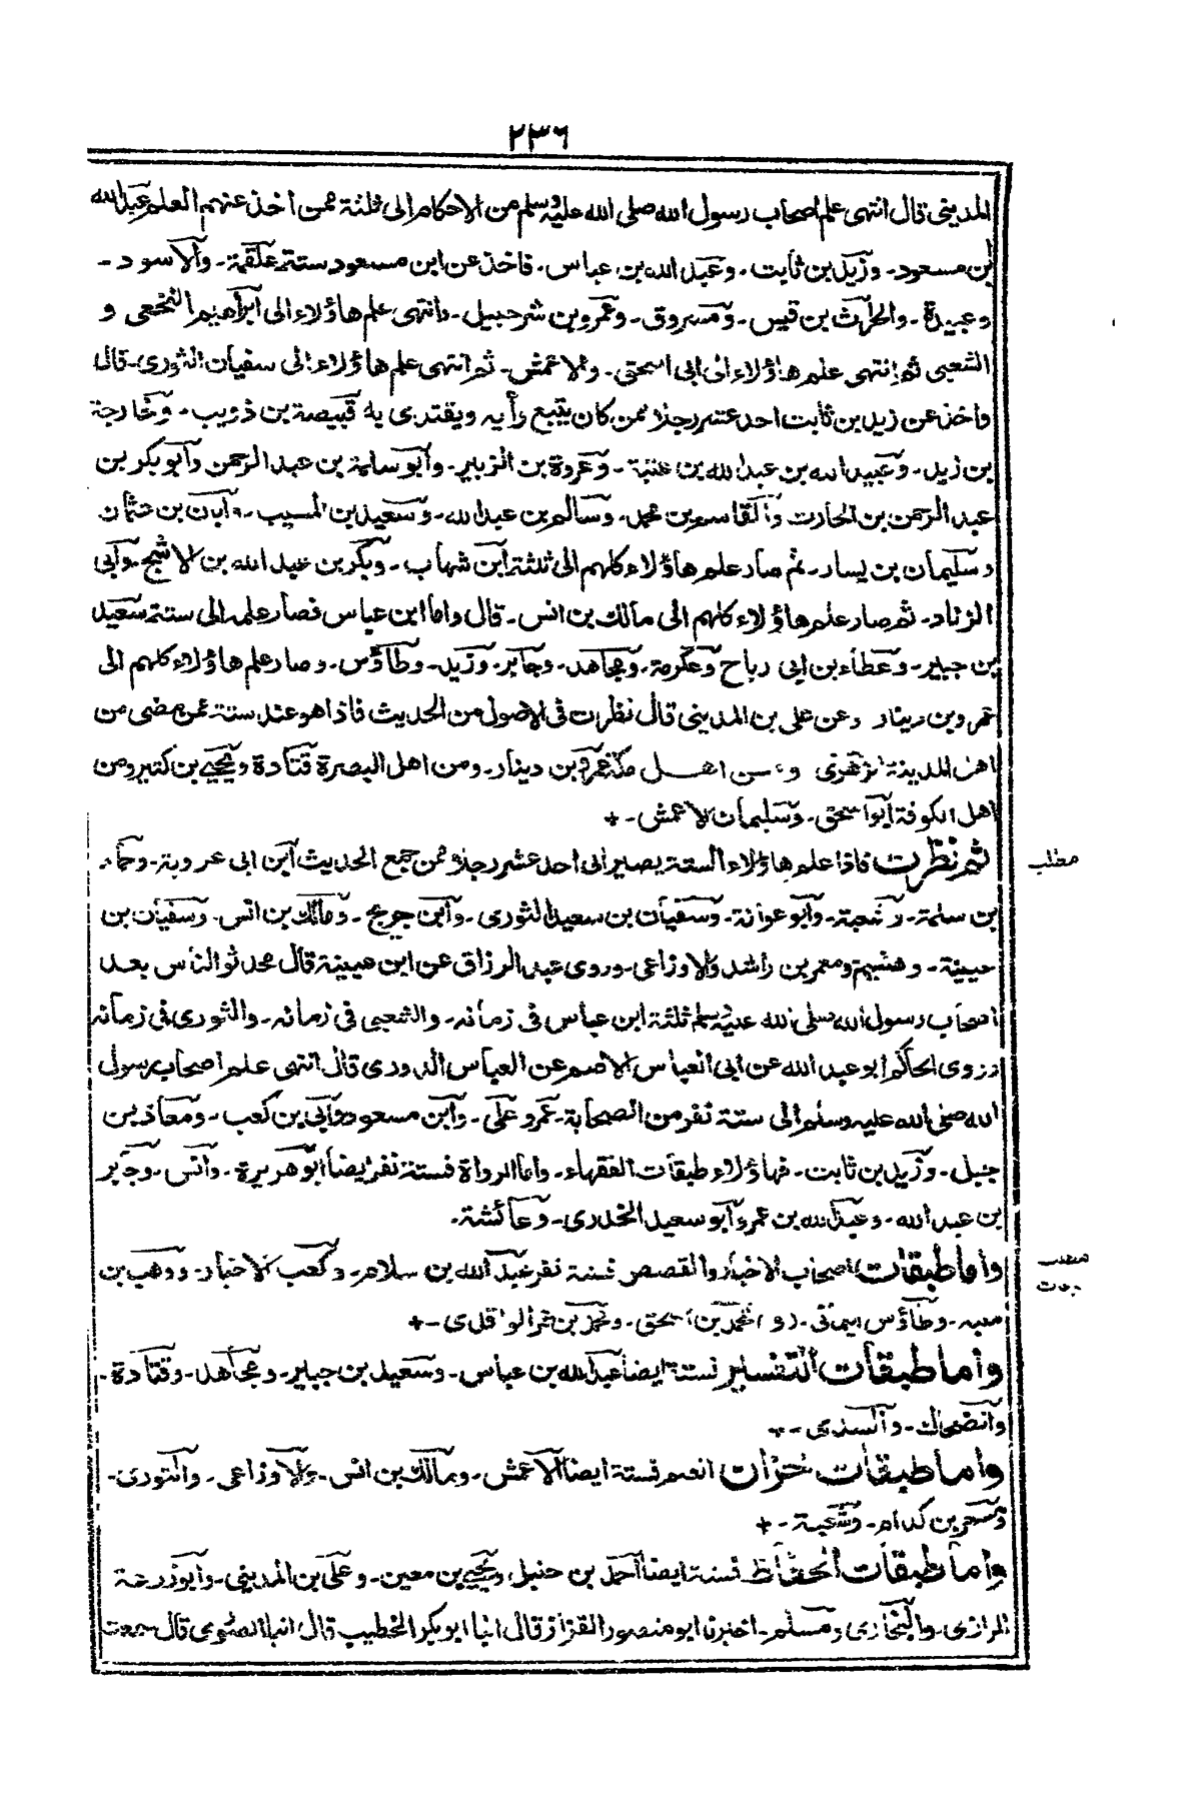 ٢٣٦
المديني قال انتهى علم اصحاب رسول الله صلى الله عليه وسلم من الاحكام الى ثلثة ممن اخذ عنهم العلم عبد الله
ابن مسعود - وزيد بن ثابت - وعبد الله بن عباس - فاخذ عن ابن مسعود ستة علقمة - والاسود -
وعبيدة - والحرث بن قيس - ومسروق - وعمرو بن شرحبيل - وانتهى علم هاؤلاء الى ابراهيم النخعي و
الشعبي ثم انتهى علم هاؤلاء الى ابى اسحق - والاعمش - ثم انتهى علم هاؤلاء الى سفيان الثورى - قال
واخذ عن زيد بن ثابت احد عشر رجلا ممن كان يتبع رأيه ويقتدى به قبيصة بن ذويب - وخارجة
بن زيد - وعبيد الله بن عبد الله بن عتبة - وعروة بن الزبير - وابو سلمة بن عبد الرحمن وابو بكر بن
عبد الرحمن بن الحارث والقاسم بن محمد - وسالم بن عبد الله - وسعيد بن المسيب - وابان بن عثمان
وسليمان بن يسار - ثم صار علم هاؤلاء كلهم الى ثلثة ابن شهاب - وبكر بن عبد الله بن الاشج - وابى
الزناد - ثم صار علم هاؤلاء كلهم الى مالك بن انس - قال واما ابن عباس فصار علمه الى ستة سعيد
بن جبير - وعطاء بن ابى رباح وعكرمة - ومجاهد - وجابر - وزيد - وطاؤس - وصار علم هاؤلاء كلهم الى
عمرو بن دينار وعن على بن المديني قال نظرت فى الاصول من الحديث فاذا هو عند ستة ممن مضى من
اهل المدينة الزهرى ومن اهل مكة عمرو بن دينار - ومن اهل البصرة قتادة ويحيى بن كثير ومن
اهل الكوفة ابو اسحق - وسليمان الاعمش - +
ثم نظرت فاذا علم هاؤلاء الستة يصير الى احد عشر رجلا ممن جمع الحديث ابن ابى عروبة - وحماد
مطلب
بن سلمة - وشعبة - وابو عوانة - وسفيان بن سعيد الثورى - وابن جريج - ومالك بن انس - وسفيان بن
عيينة - وهشيم ومعمر بن راشد والاوزاعى - وروى عبد الرزاق عن ابن عيينة قال محدثو الناس بعد
اصحاب رسول الله صلى الله عليه وسلم ثلثة ابن عباس فى زمانه - والشعبى فى زمانه - والثورى فى زمانه
وروى الحاكم ابو عبد الله عن ابى العباس الاصم عن العباس الدورى قال انتهى علم اصحاب رسول
الله صلى الله عليه وسلم الى ستة نفر من الصحابة - عمر وعلى - وابن مسعود وابى بن كعب - ومعاذ بن
جبل - وزيد بن ثابت - فهاؤلاء طبقات الفقهاء - واما الرواة فستة نفر ايضا ابو هريرة - وانس - وجابر
بن عبد الله - وعبد الله بن عمر وابو سعيد الخدرى - وعائشة -
واما طبقات اصحاب الاخبار والقصص فستة نفر عبد الله بن سلام - وكعب الاحبار - ووهب بن
مطلب
منبه - وطاؤس اليمانى - ومحمد بن اسحق - ومحمد بن عمر الواقدى - +
واما طبقات التفسير فستة ايضا عبد الله بن عباس - وسعيد بن جبير - ومجاهد - وقتادة -
والضحاك - والسدى - +
واما طبقات خزان العلم فستة ايضا الاعمش - ومالك بن انس - والاوزاعى - والثورى -
ومسعر بن كدام - وشعبة - +
واما طبقات الحفاظ فستة ايضا احمد بن حنبل ويحيى بن معين - وعلى بن المديني - وابو زرعة
الرازى - والبخارى ومسلم - اخبرنا ابو منصور القزاز قال انبا ابو بكر الخطيب قال انبا الصورى قال سمعت